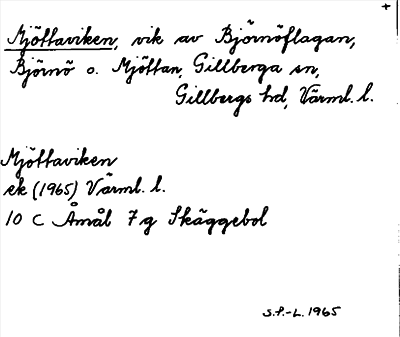 +
Mjöttaviken, vik av Björnöflagan,
Björnö o. Mjöttan, Gillberga sn,
Gillbergs hd, Värml. l.
Mjöttaviken
ek (1965) Värml. l.
10 C Åmål 7 g Skäggebol
S.P.-L. 1965